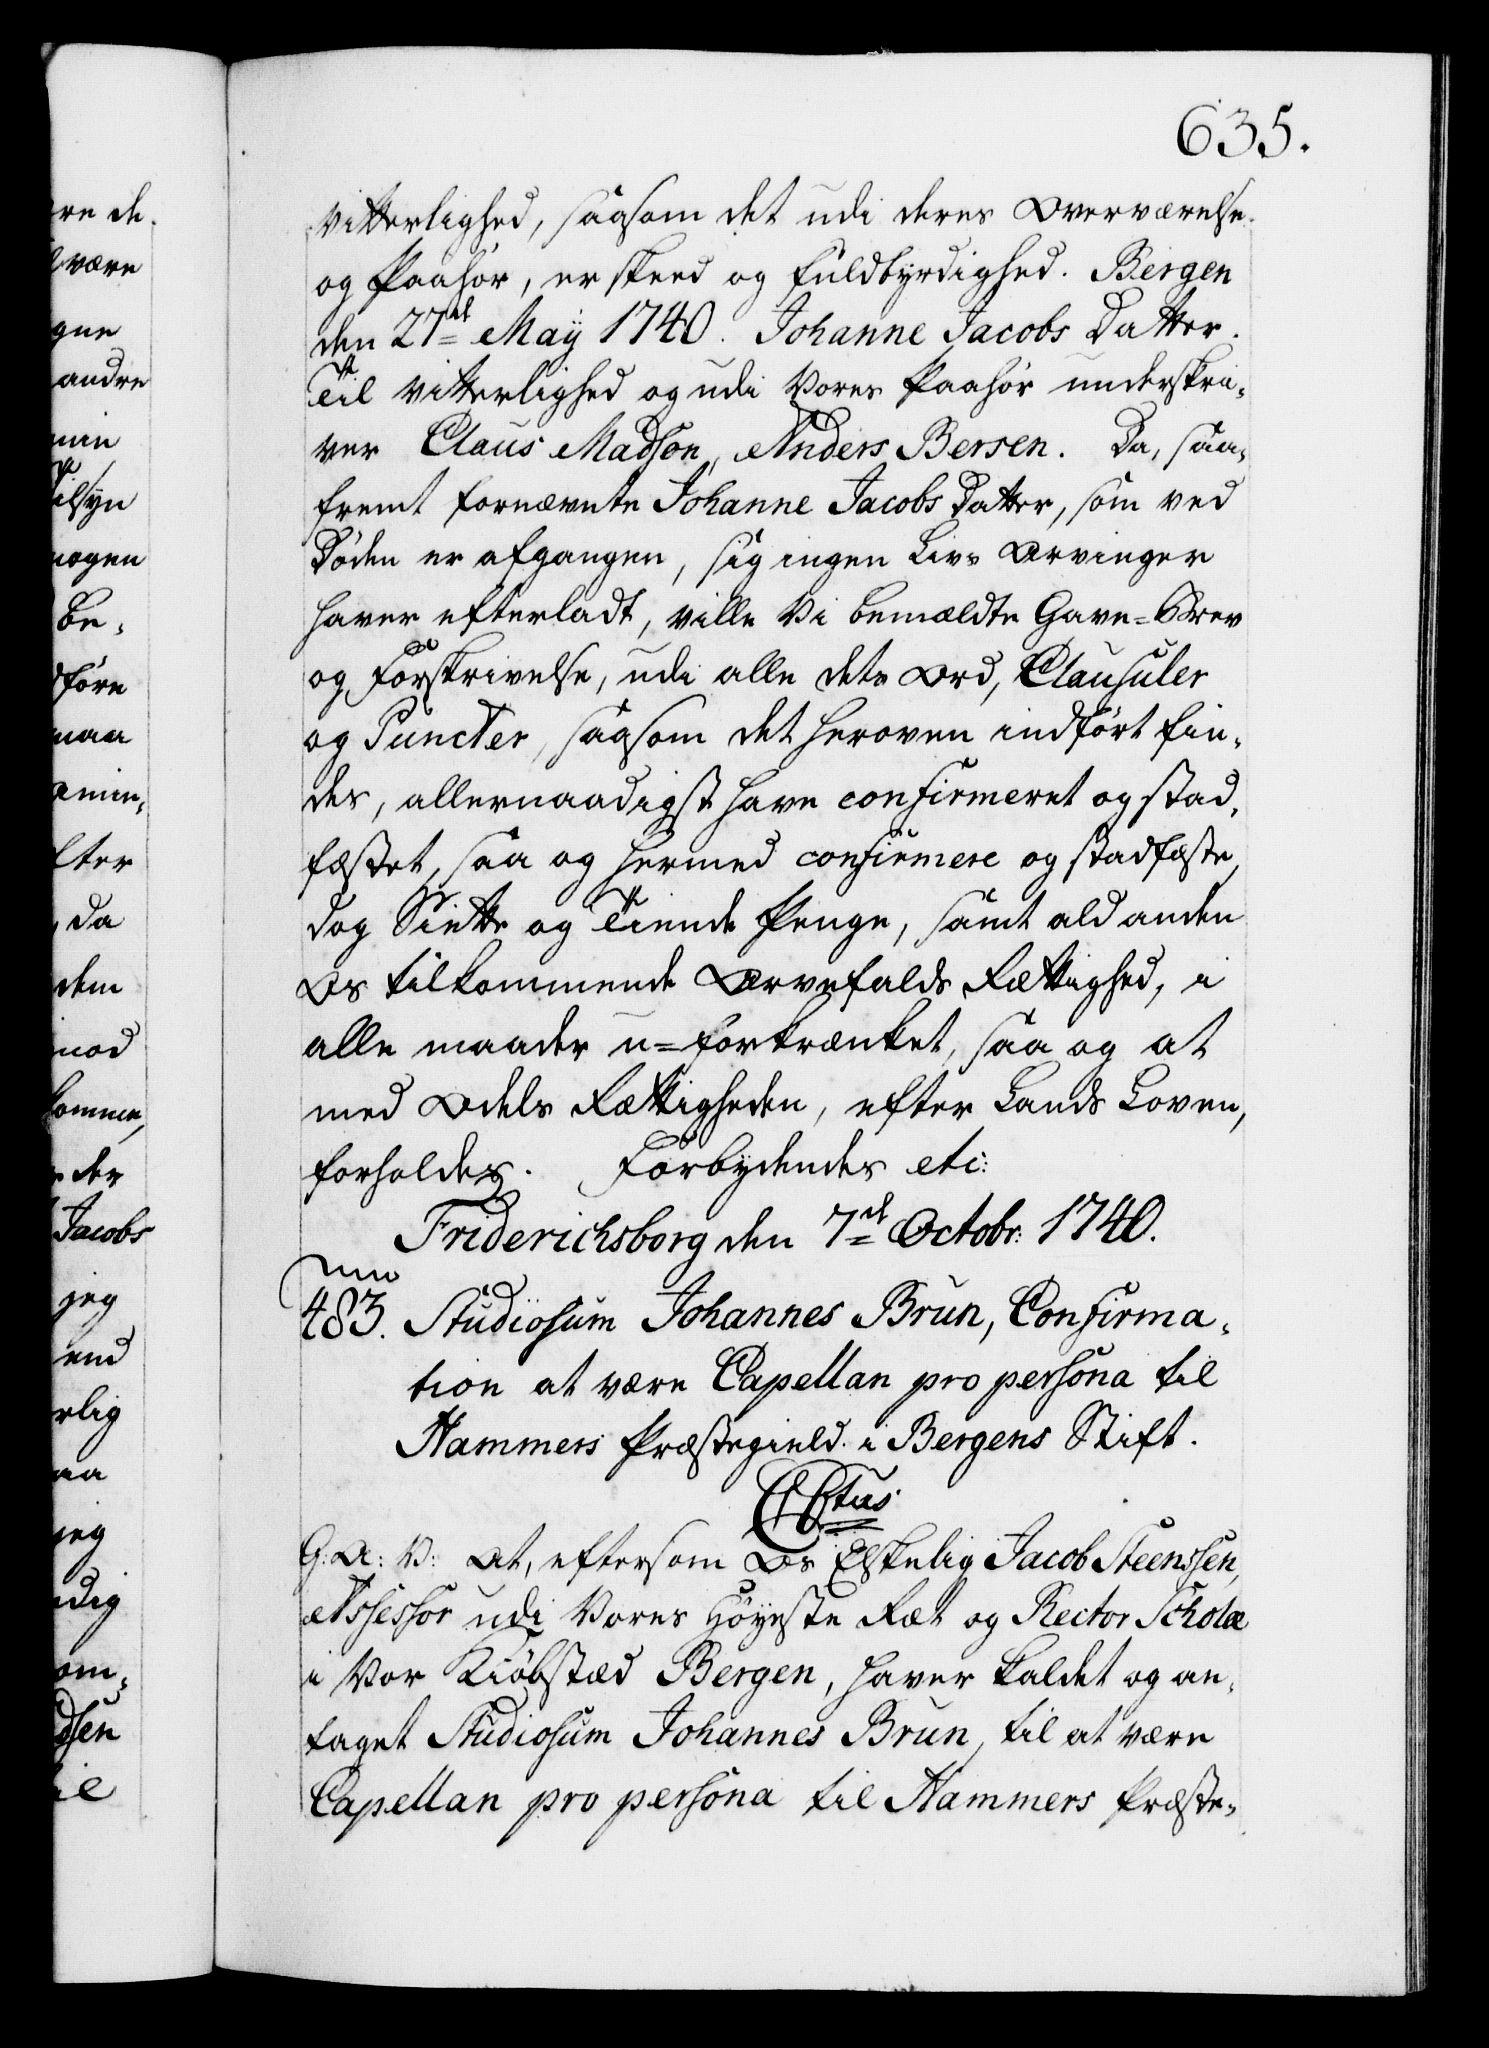 635.
vitterlighed, saasom det udi deres Overværelse
og Paahør, er skeed og fuldbyrdighed. Bergen
den 27de May 1740. Johanne Jacobs Datter.
Til vitterlighed og udi Vores Paahør underskri-
ver Claus Madson, Anders Bersen. Da, saa-
fremt fornævnte Johanne Jacobs Datter, som ved
Døden er afgangen, sig ingen Livs Arvinger
haver efterladt, ville Vi bemældte Gave=Brev
og Forskrivelse, udi alle dets Ord, Clausuler
og Puncter, saasom det heroven indført fin-
des, allernaadigst have confirmeret og stad-
fæstet, saa og hermed confirmere og stadfæste,
dog Siette og Tiende Penge, samt ald anden
Os tilkommende Arvefalds Rettighed, i
alle maader u=forkrænket, saa og at
med Odels Rettigheden, efter Lands Loven,
forholdes. Forbydendes etc:
Friderichsborg den 7de Octobr: 1740.
483. Studiosum Johannes Brun, Confirma-
tion at være Capellan pro persona til
Hammers Præstegield i Bergens Stift.
C6tus
G: A: V: At, eftersom Os Elskelig Jacob Steenssen,
Assessor udi Vores Høyeste Ret og Rector Scholæ
i Vor Kiøbstæd Bergen, haver kaldet og an-
taget Studiosum Johannes Brun, til at være
Capellan pro persona til Hammers Præste-
re de
være
gne
andre
min
Tilsyn
nogen
be-
føre
maa
lter
da
dem
mod
komme,
der
Jacobs
jeg
end
rlig
aa
jeg
dig
om-
dsen
il